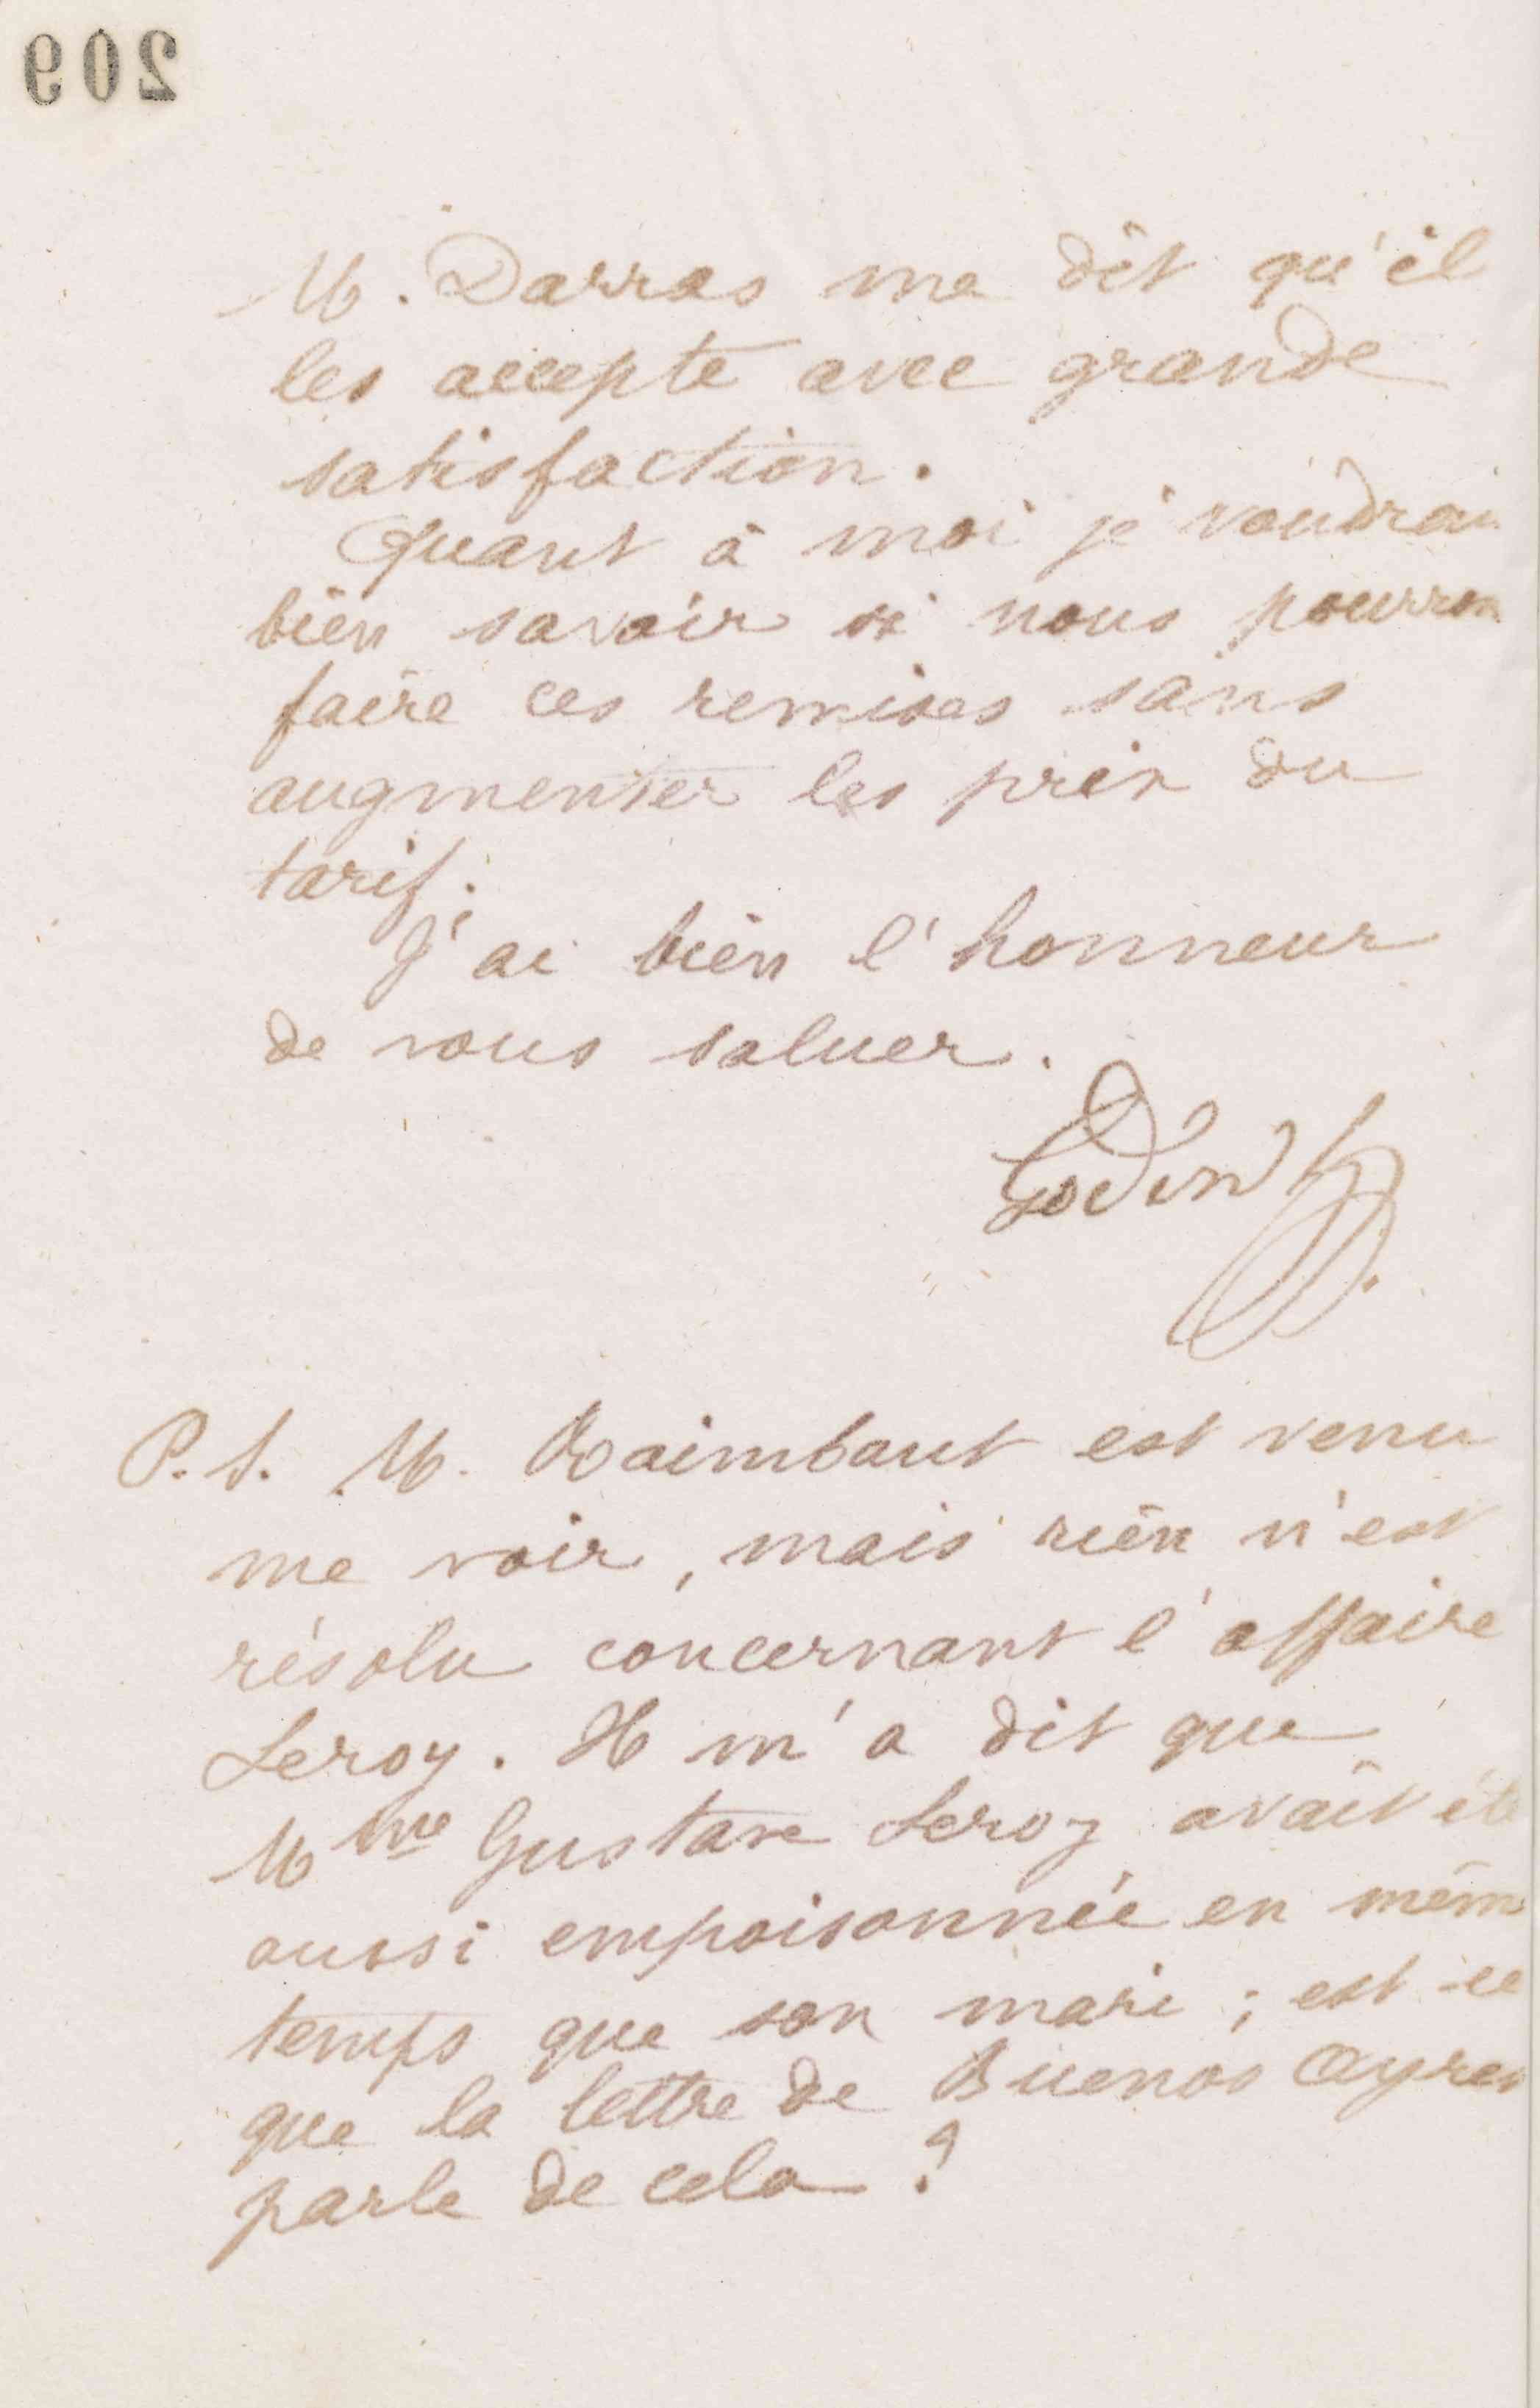 209
M. Darras me dit qu'il
les accepte avec grande
satisfaction.
Quant à moi je voudrai
bien savoir si nous pourron
faire ces remises sans
augmenter les prix du
tarif.
J'ai bien l'honneur
de vous saluer.
Godin
P.S. M. Raimbaut est venu
me voir, mais rien n'est
résolu concernant l'affaire
Leroy. Il m'a dit que
Mme Gustave Leroy avait été
aussi empoisonnée en même
temps que son mari ; est ce
que la lettre de Buenos Ayres
parle de cela ?